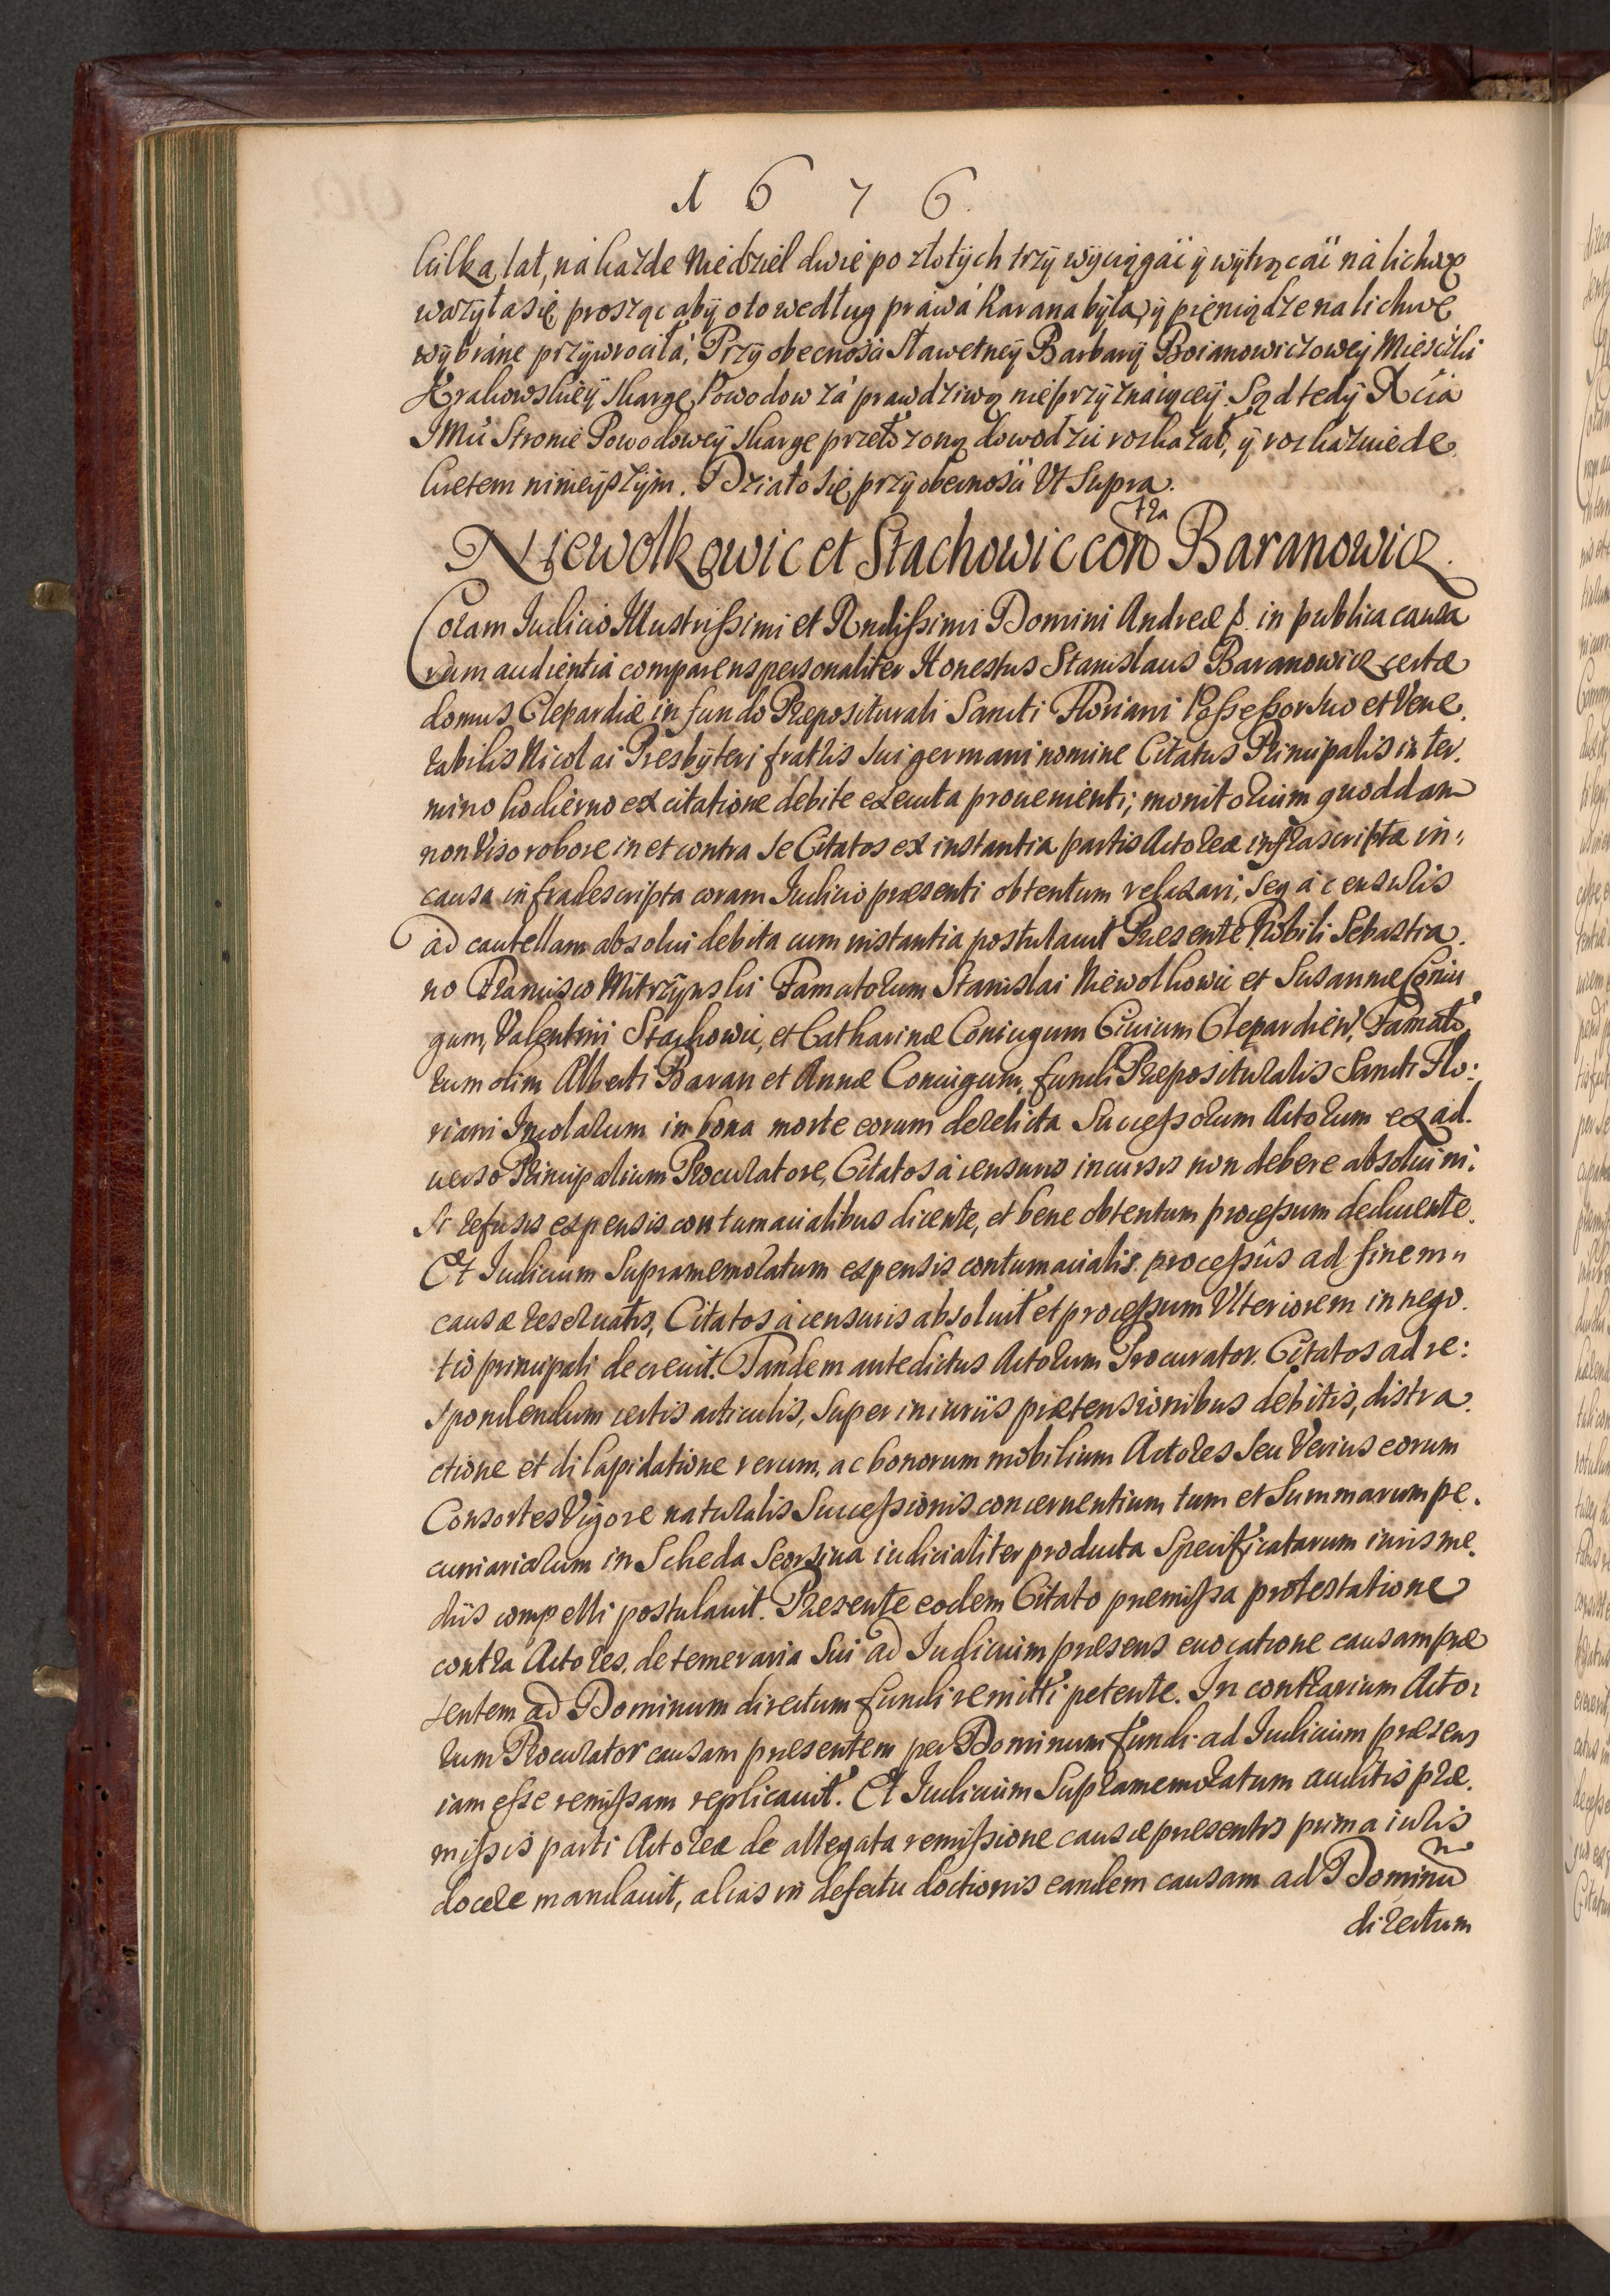 1676.
kilka lat, ná każde Niedziel dwie po złotÿch trzÿ wÿciągáć ÿ wÿtrącáć ná lichwę
wazÿła się prosząc abÿ o to według práwá karana bÿłá, ÿ pieniądze na lichwę
wÿbráne przÿwrociłá, Przÿ obecnosci Sławetneÿ Barbarÿ Boianowiczoweÿ Miesczki
Krakowskieÿ skargę Powodow zá prawdziwą nieprzÿznáiąceÿ. Sąd tedÿ Xcia
JMci Stronie Powodoweÿ skargę przełożoną dowodzic roskazał, ÿ roskazuie de,
kretem ninieÿszÿm. Działo się przÿ obecnosci Vt Supra.
Niewolkowic et Stachowic con̅tra Baranowicz.
Coram Iudicio Illustrissimi et Rndissimi Domini Andreæ p. in publica causa
rum audientia comparens personaliter Honestus Stanislaus Baranowicz certæ
domus Clepardiæ in fundo Præpositurali Sancti Floriani Possessor suo et Vene,
rabilis Nicolai Presbÿteri fratris sui germani nomine Citatus Principalis in ter,
mino hodierno ex citatione debite executa prouenienti; monitorium quoddam
non Viso robore in et contra se Citatos ex instantia partis Actoreæ infrascriptæ in,,
causa infradescripta coram Iudicio præsenti obtentum relaxari, seq à censuris
ad cautellam absolui debita cum instantia postulauit Præsente Nobili Sebastia,
no Francisco Mitrzÿnski Famatorum Stanislai Niewolkowic et Susannæ Coniu
gum, Valentini Stachowic, et Catharinæ Coniugum Ciuium Clepardien̅, Famato
rum olim Alberti Baran et Annæ Coniugum, fundi Præposituralis Sancti Flo:
riani Incolarum in bona morte eorum derelicta Successorum Actorum ex ad,
uerso Principalium Procuratore, Citatos à censuris incursis non debere absolui ni,
si refusis expensis contumacialibus dicente, et bene obtentum processum deducente.
Et Iudicium Supramemoratum expensis contumacialis processûs ad finem,,
causæ reseruatis, Citatos à censuris absoluit et processum Vlteriorem in nego,
tio principali decreuit. Tandem antedictus Actorum Procurator Citatos ad re:
spondendum certis articulis, super iniuriis prætensionibus debitis, distra,
ctione et dilapidatione rerum, ac bonorum mobilium Actores seu Verius eorum
Consortes Vigore naturalis Successionis concernentium tum et Summarum pe,
cuniariarum in Scheda Seorsiua iudicialiter producta Specificatarum iuris me,
diis compelli postulauit. Præsente eodem Citato præmissa protestatione
contra Actores, de temeraria sui ad Iudicium præsens euocatione causam præ
sentem ad Dominum directum fundi remitti petente. In contrarium Acto,
rum Procurator causam præsentem per Dominum fundi ad Iudicium præsens
iam esse remissam replicauit. Et Iudicium Supramemoratum auditis præ,
missis parti Actoreæ de allegata remissione causæ præsentis prima iuris
docere mandauit, alias in defectu doctionis eandem causam ad Dominu̅
directum